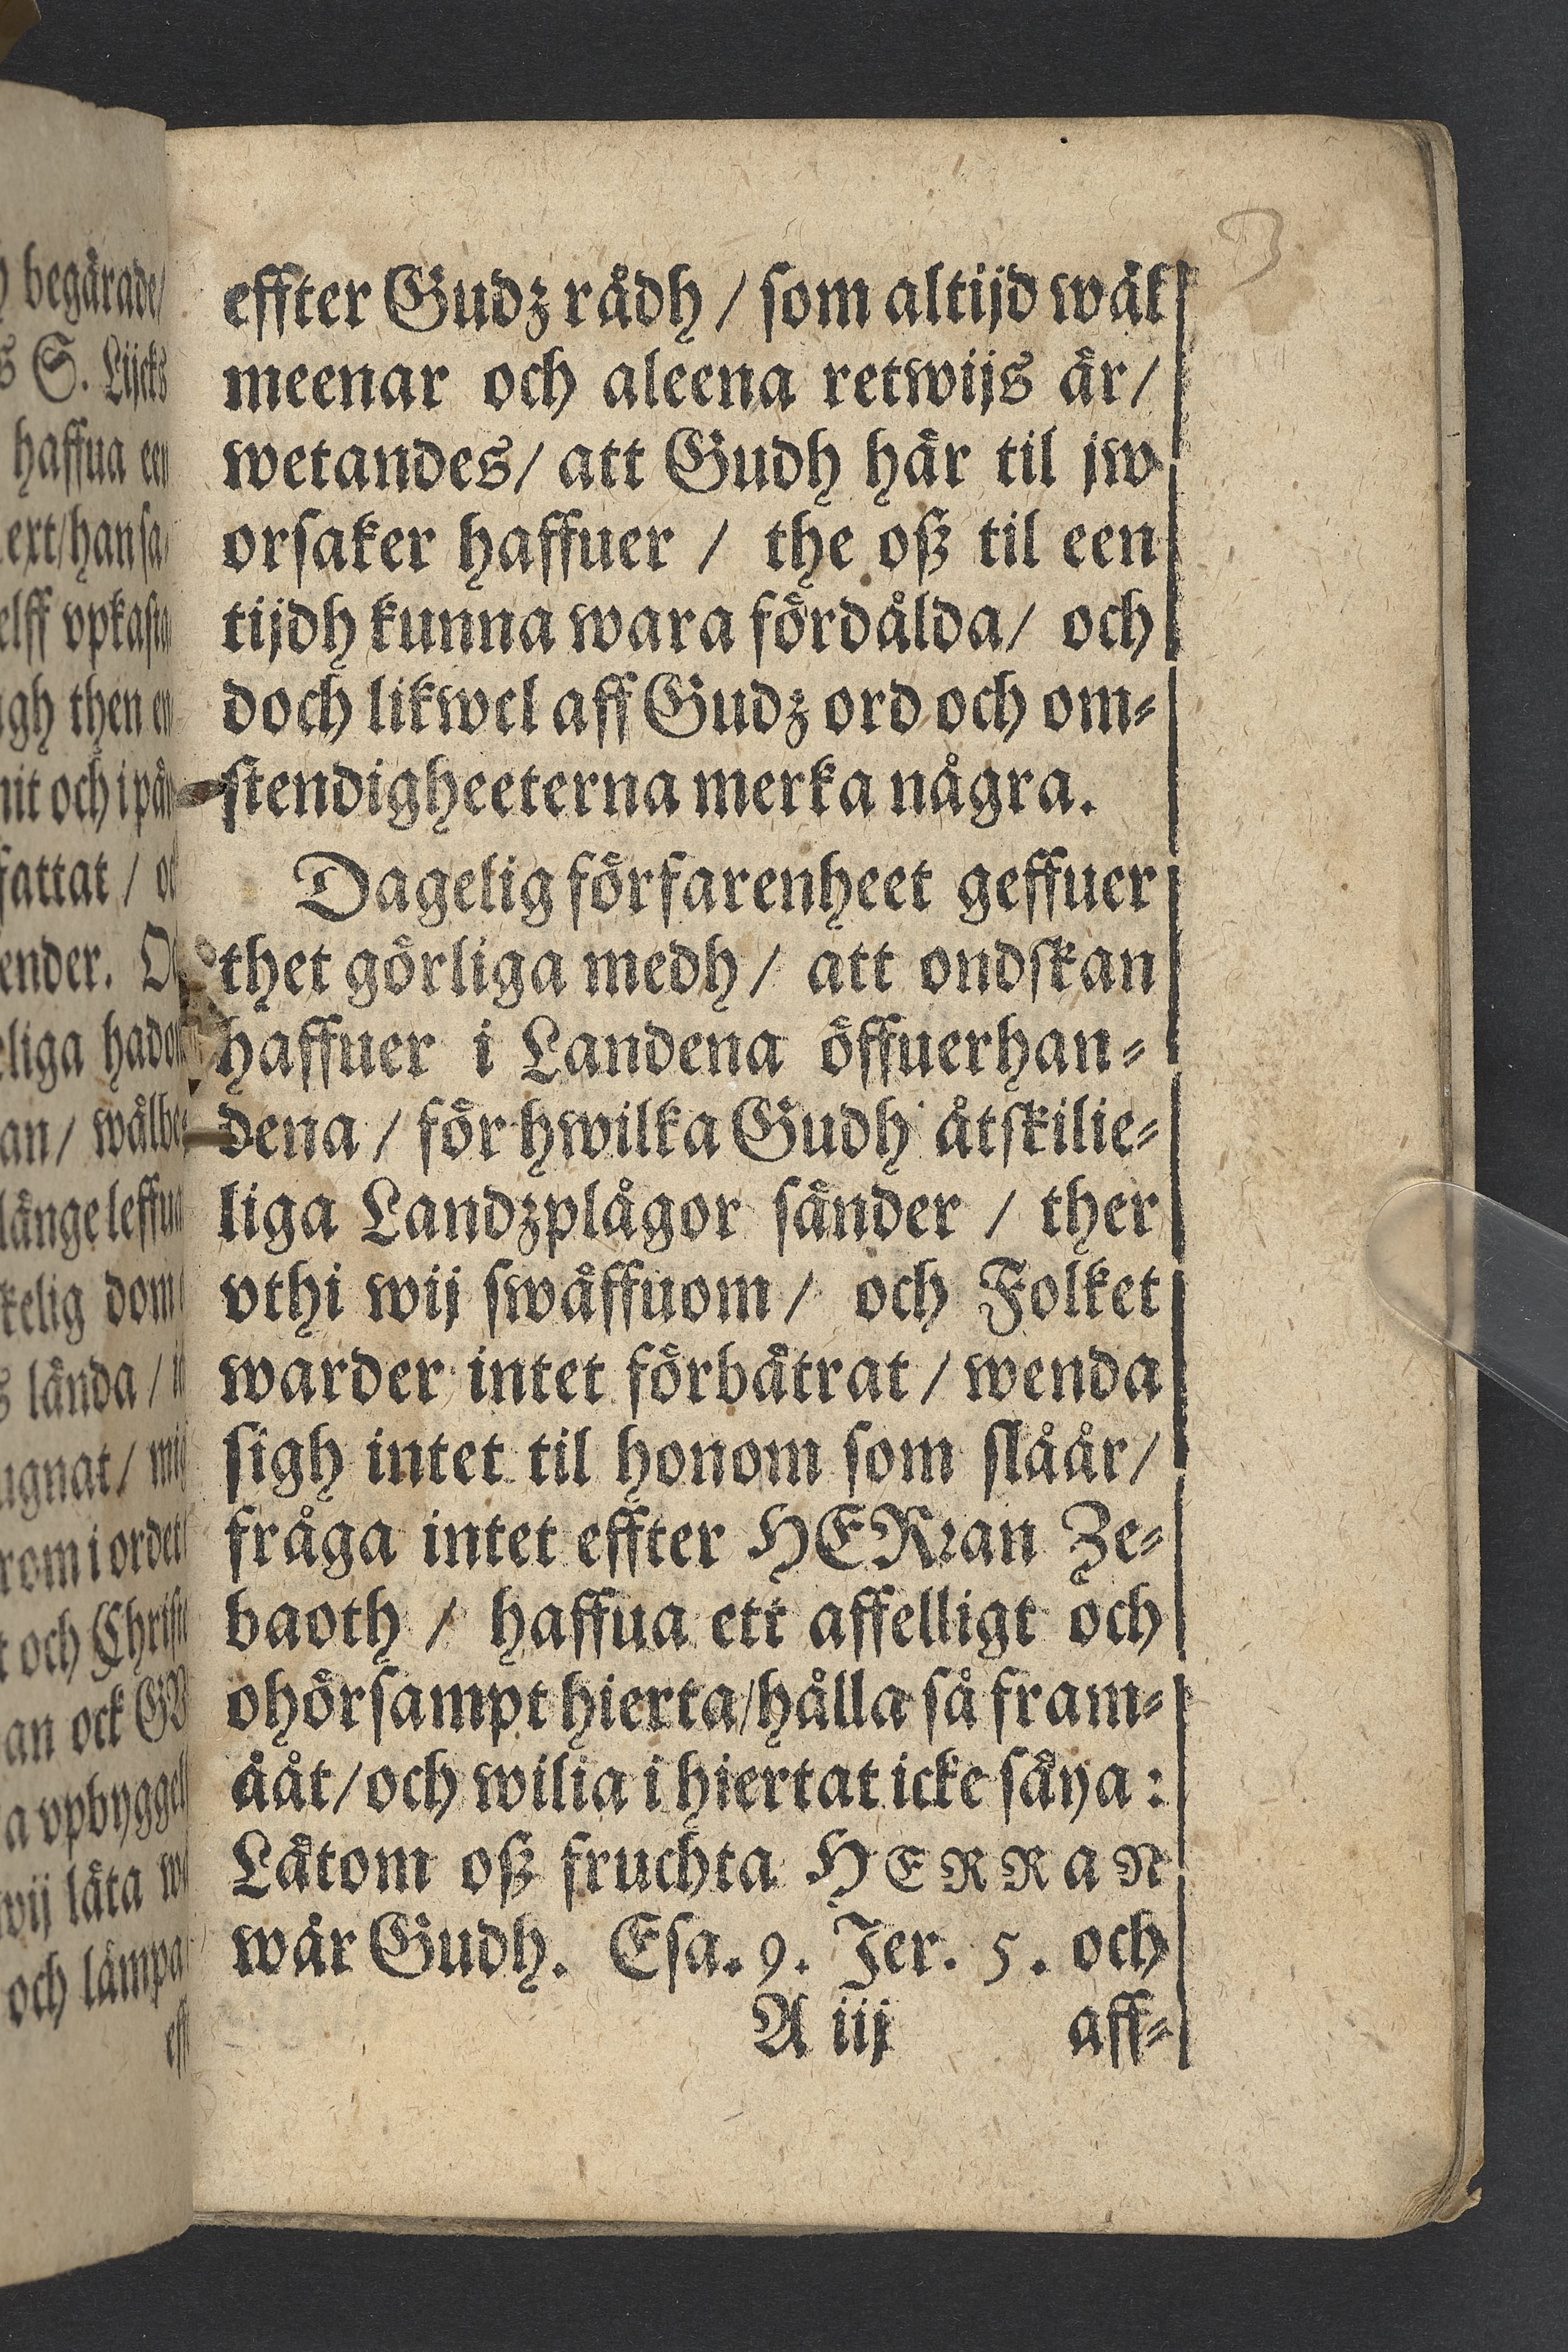 effter Gudz rådh / som altijd wäl
meenar och aleena retwijs är/
wetandes/ att Gudh här til jw
orsaker haffuer / the oß til een
tijdh kunna wara fördålda/ och
doch likwel aff Gudz ord och om⸗
stendigheeterna merka några.
Dagelig förfarenheet geffuer
thet görliga medh/ att ondskan
haffuer i Landena öffuerhan⸗
dena / för hwilka Gudh åtskilie⸗
liga Landzplågor sänder / ther
vthi wij swäffuom/ och Folket
warder intet förbätrat / wenda
sigh intet til honom som slåår/
fråga intet effter HERꝛan Ze⸗
baoth / haffua ett affelligt och
ohörsampt hierta/hålla så fram⸗
ååt/och wilia i hiertat icke säya:
Låtom oß fruchta HERRaN
wår Gudh. Esa. 9. Jer. 5. och
A iij aff⸗
begärade/
S. Lijcks
haffua een
vpkasta
then
och i
fattat /
ender.
liga
an/
länge leffua
dom
lända /
ugnat/
rom i ordet
och
an ock
a vpbyggel
wij låta
och lämpa
3